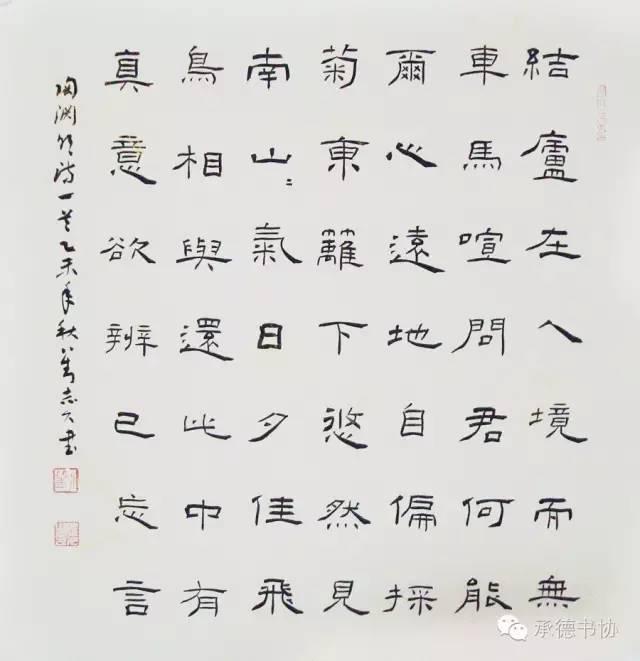 結廬在人境而無
車馬喧問君何能
爾心遠地自偏採
菊東籬下悠然見
南山〻氣日夕佳飛
鳥相與還此中有
真意欲辨已忘言
陶淵明詩一首乙未年秋志書
承德书协